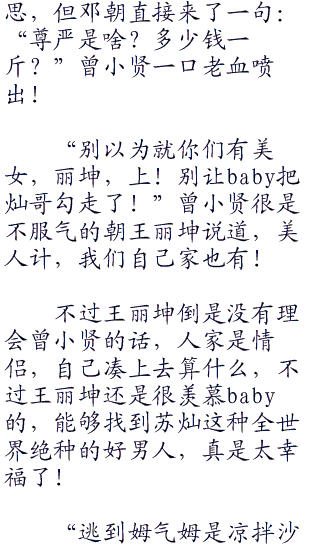 思，但邓朝直接来了一句：
“尊严是啥？多少钱一
斤？”曾小贤一口老血喷
出！
“别以为就你们有美
女，丽坤，上！别让baby把
灿哥勾走了！”曾小贤很是
不服气的朝王丽坤说道，美
人计，我们自己家也有！
不过王丽坤倒是没有理
会曾小贤的话，人家是情
侣，自己凑上去算什么，不
过王丽坤还是很羡慕baby
的，能够找到苏灿这种全世
界绝种的好男人，真是太幸
福了！
“逃到姆气姆是凉拌沙